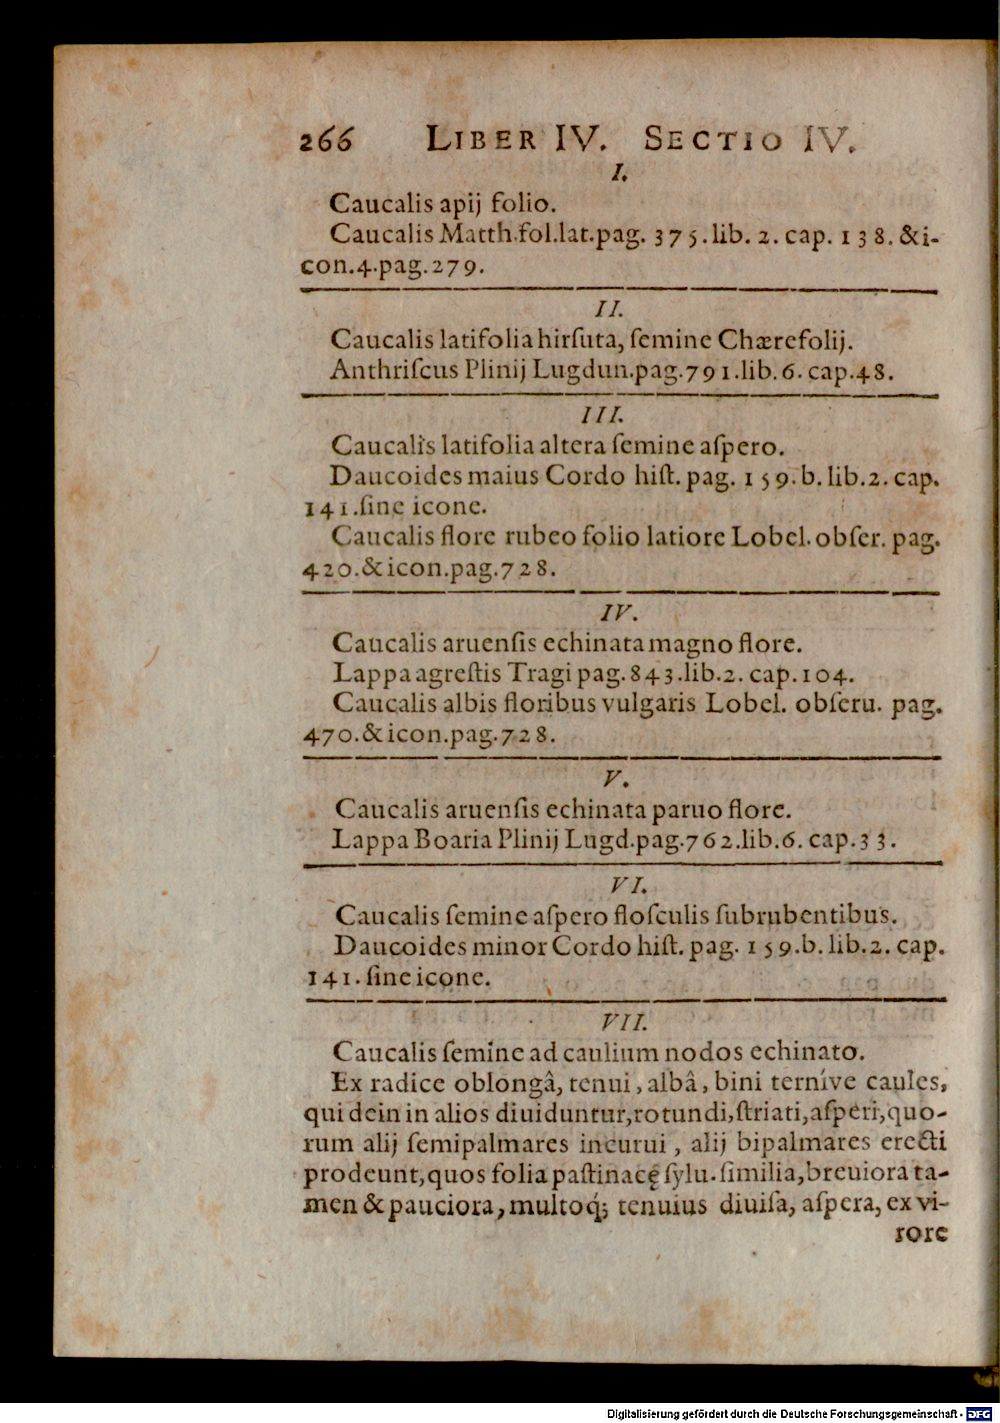 266 LIBER IV. SECTIO IV.
I.
Caucalis apij folio.
Caucalis Matth.fol.lat.pag. 375.lib. 2. cap. 138. &i-
con.4.pag.279.
II.
Caucalis latifolia hirſuta, ſemine Chærefolij.
Anthriſcus Plinij Lugdun.pag.791.lib.6.cap.48.
III.
Caucalis latifolia altera ſemine aſpero.
Daucoides maius Cordo hiſt. pag. 159.b. lib.2. cap.
141.ſine icone.
Caucalis flore rubeo folio latiore Lobel. obſer. pag.
420.&icon.pag.728.
IV.
Caucalis aruenſis echinata magno flore.
Lappa agreſtis Tragi pag.843.lib.2. cap.104.
Caucalis albis floribus vulgaris Lobel. obſeru. pag.
470.&icon.pag.728.
V.
Caucalis aruenſis echinata paruo flore.
Lappa Boaria Plinij Lugd.pag.762.lib.6. cap.33.
VI.
Caucalis ſemine aſpero floſculis ſubrubentibus.
Daucoides minor Cordo hiſt. pag. 159.b. lib.2. cap.
141. ſine icone.
VII.
Caucalis ſemine ad caulium nodos echinato.
Ex radice oblongâ, tenui, albâ, bini ternive caules,
qui dein in alios diuiduntur,rotundi,ſtriati,aſperi,quo-
rum alij ſemipalmares incurui, alij bipalmares erecti
prodeunt,quos folia paſtinacę ſylu. ſimilia,breuiora ta-
men & pauciora, multoq́; tenuius diuiſa, aſpera, ex vi-
rore
Digitalisierung gefördert durch die Deutsche Forschungsgemeinschaft - DFG